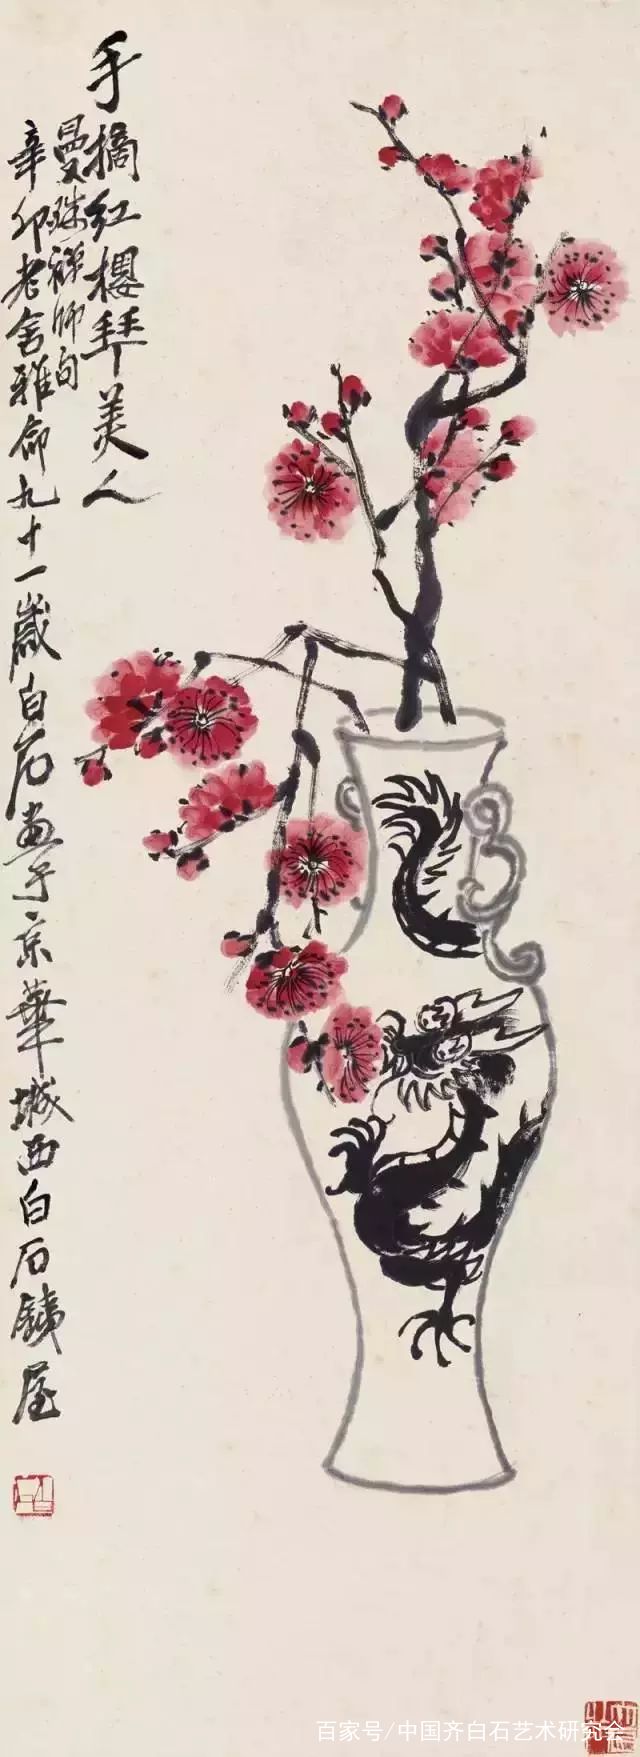 手摘紅櫻拜美人
曼殊禪師句
辛卯老舍雅命九十一歲白石畫于京華城西白石鐵屋
百家号/中国齐白石艺术研究会